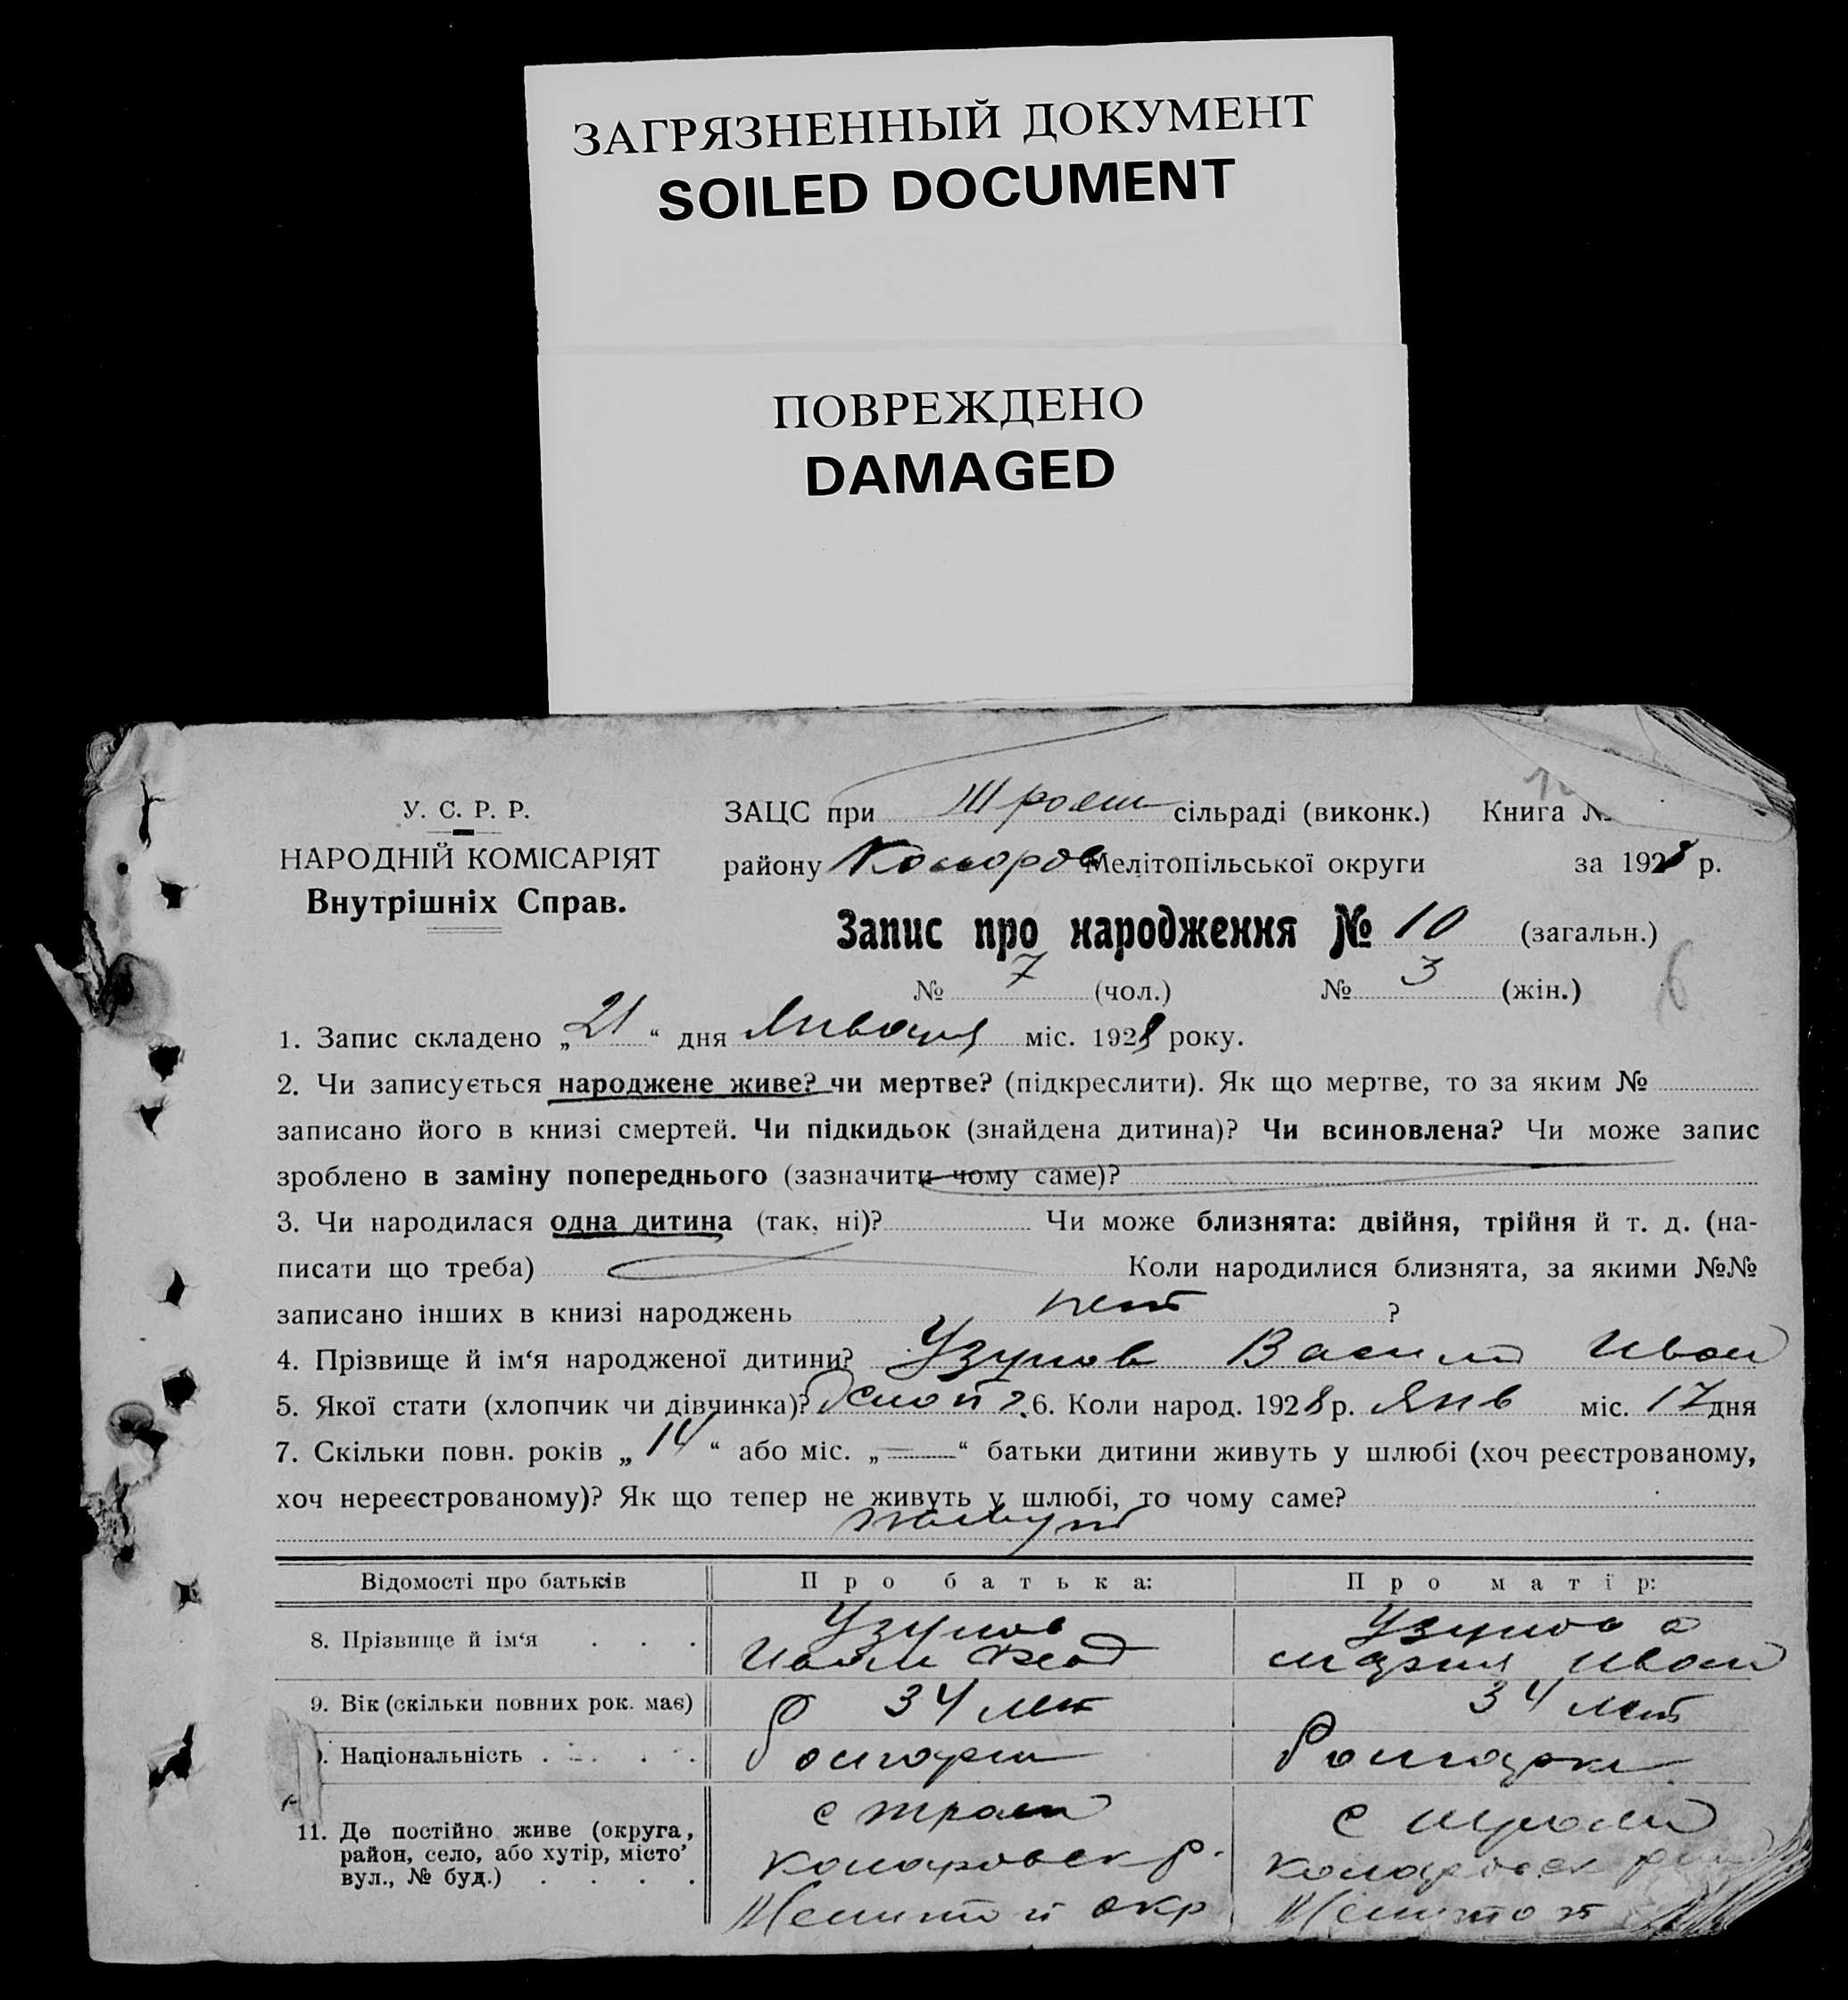 ЗАГРЯЗНЕННЫЙ ДОКУМЕНТ
SOILED DOCUMENT
ПОВРЕЖДЕНО
DAMAGED
У. С. Р. Р.
НАРОДНІЙ КОМІСАРІЯТ
Внутрішніх Справ.
ЗАЦС при Троян сільраді (виконк.) Книга №
району Коларов Мелітопільської округи за 1928 р.
Запис про народження № 10 (загальн.)
№ 7 (чол.) № 3 (жін.)
6
1. Запис складено „21“ дня Января міс. 1928 року.
2. Чи записується народжене живе? чи мертве? (підкреслити). Як що мертве, то за яким №
записано його в книзі смертей. Чи підкидьок (знайдена дитина)? Чи всиновлена? Чи може запис
зроблено в заміну попереднього (зазначити чому саме)?
3. Чи народилася одна дитина (так, ні)? Чи може близнята: двійня, трійня й т. д. (на-
писати що треба) Коли народилися близнята, за якими №№
записано інших в книзі народжень нет ?
4. Прізвище й ім‘я народженої дитини? Узунов Васили Иван
5. Якої стати (хлопчик чи дівчинка)? 6. Коли народ. 1928 р. Янв міс. 17 дня
7. Скільки повн. років „14“ або міс. „—“ батьки дитини живуть у шлюбі (хоч реєстрованому,
хоч нереєстрованому)? Як що тепер не живуть у шлюбі, то чому саме?
живут
Відомості про батьків Про батька: Про матір:
8. Прізвище й ім‘я Узунов Узунова
Иван Феод Мария Иван
9. Вік (скільки повних рок. має) 34 лет 34 лет
. Національність болгарин болгарка
11. Де постійно живе (округа, с Троян с Троян
район, село, або хутір, місто’ Коларовск р. Коларовск
вул., № буд.) Мелитоп окр Мелитоп